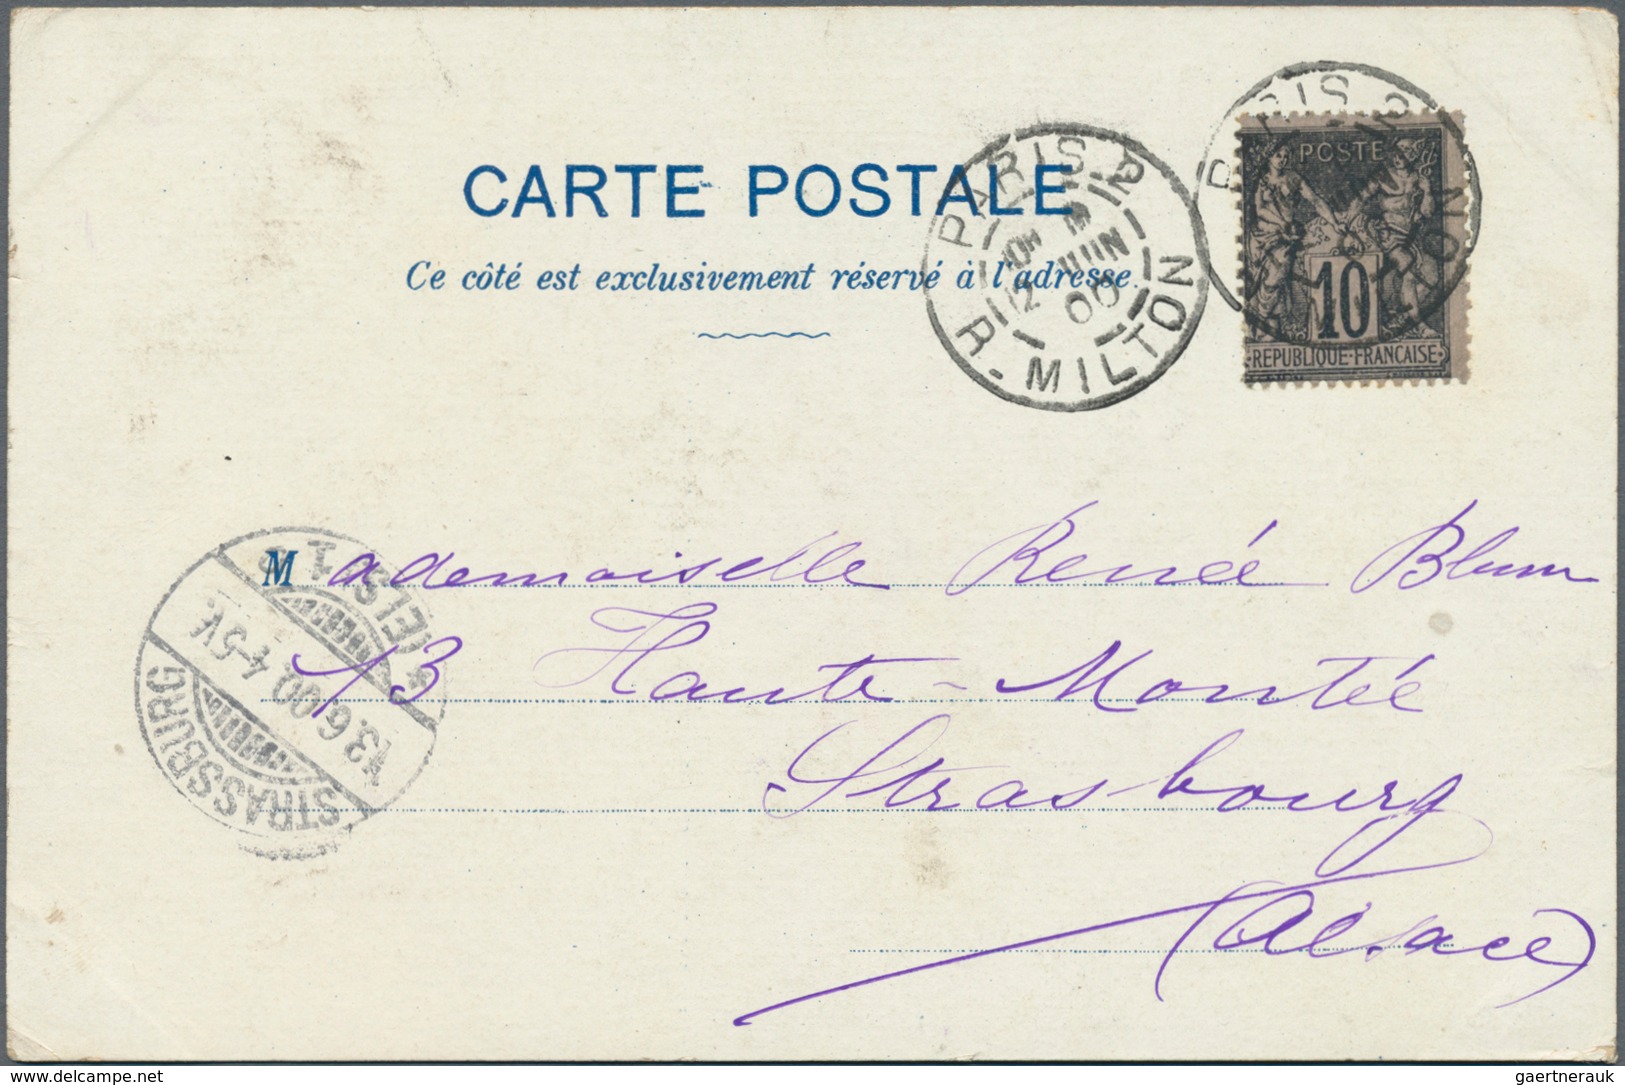 CARTE POSTALE
Ce côté est exclusivement réservé à l'adresse.
PARIS. 2
12 JUIN
00
R. MILTON
POSTE
10
REPUBLIQUE·FRANÇAISE
Mademoiselle Renée Blum
13 Haute-Montée
Strasbourg
(Alsace)
STRASSBURG
13.6.00. 4-5V.
www.delcampe.net
gaertnerauk